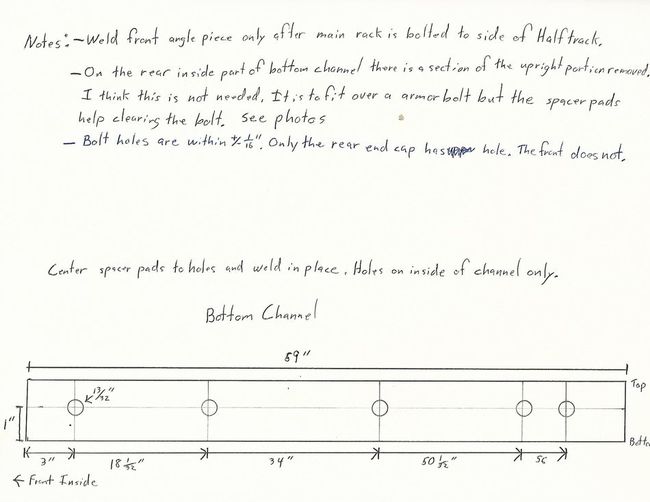 Notes: - Weld front angle piece only after main rack is bolted to side of Halftrack.
- On the rear inside part of bottom channel there is a section of the upright portion removed.
I think this is not needed. It is to fit over a armor bolt but the spacer pads
help clearing the bolt. See photos
- Bolt holes are within +/- 1/16". Only the rear end cap has hole. The front does not.
Center spacer pads to holes and weld in place. Holes on inside of channel only.
Bottom Channel
59"
13/32"
Top
1"
Bottom
3" 18 1/32" 34" 50 1/2" 56
← Front Inside